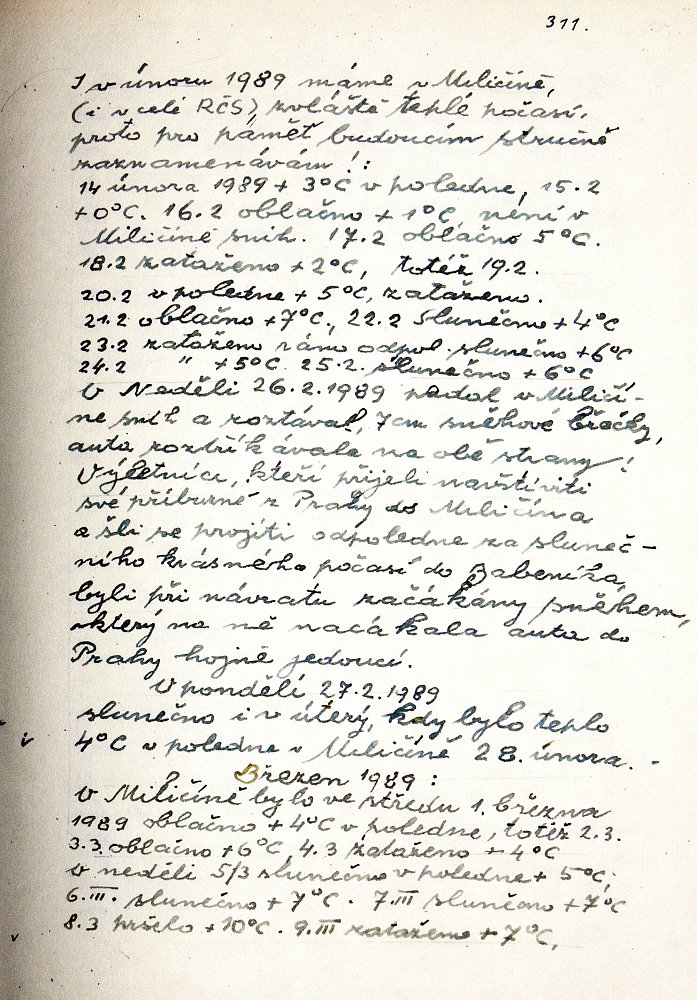 311.
I v únoru 1989 máme v Miličíně,
(i v celé RČS) zvláště teplé počasí.
proto pro paměť budoucím stručně
zaznamenávám!:
14 února 1989 + 3°C v poledne, 15.2
+0°C. 16.2 oblačno + 1°C, není v
Miličíně sníh. 17.2 oblačno 5°C.
18.2 zataženo +2°C, totéž 19.2.
20.2 v poledne + 5°C, zataženo.
21.2 oblačno +7°C., 22.2 Slunečno +4°C
23.2 zataženo ráno odpol. slunečno +6°C
24.2 " +5°C. 25.2. slunečno +6°C
V Neděli 26.2.1989 padal v Miličí-
ně sníh a roztával, 7cm sněhové břečky,
auta rozstřikávala na obě strany!
Výletníci, kteří přijeli navštíviti
své příbuzné z Prahy do Miličína
a šli se projíti odpoledne za sluneč-
ního krásného počasí do Babeníka,
byli při návratu zacákány sněhem,
který na ně nacákala auta do
Prahy hojně jedoucí.
V pondělí 27.2.1989
slunečno i v úterý, kdy bylo teplo
4°C v poledne v Miličíně 28. února.
Březen 1989:
V Miličíně bylo ve středu 1. března
1989 oblačno +4°C v poledne, totéž 2.3.
3.3. oblačno +6°C, 4.3 zataženo + 4°C
v neděli 5/3 slunečno v poledne + 5°C;
6.III. slunečno + 7°C. 7.III slunečno +7°C
8.3 pršelo +10°C. 9.III zataženo + 7°C,